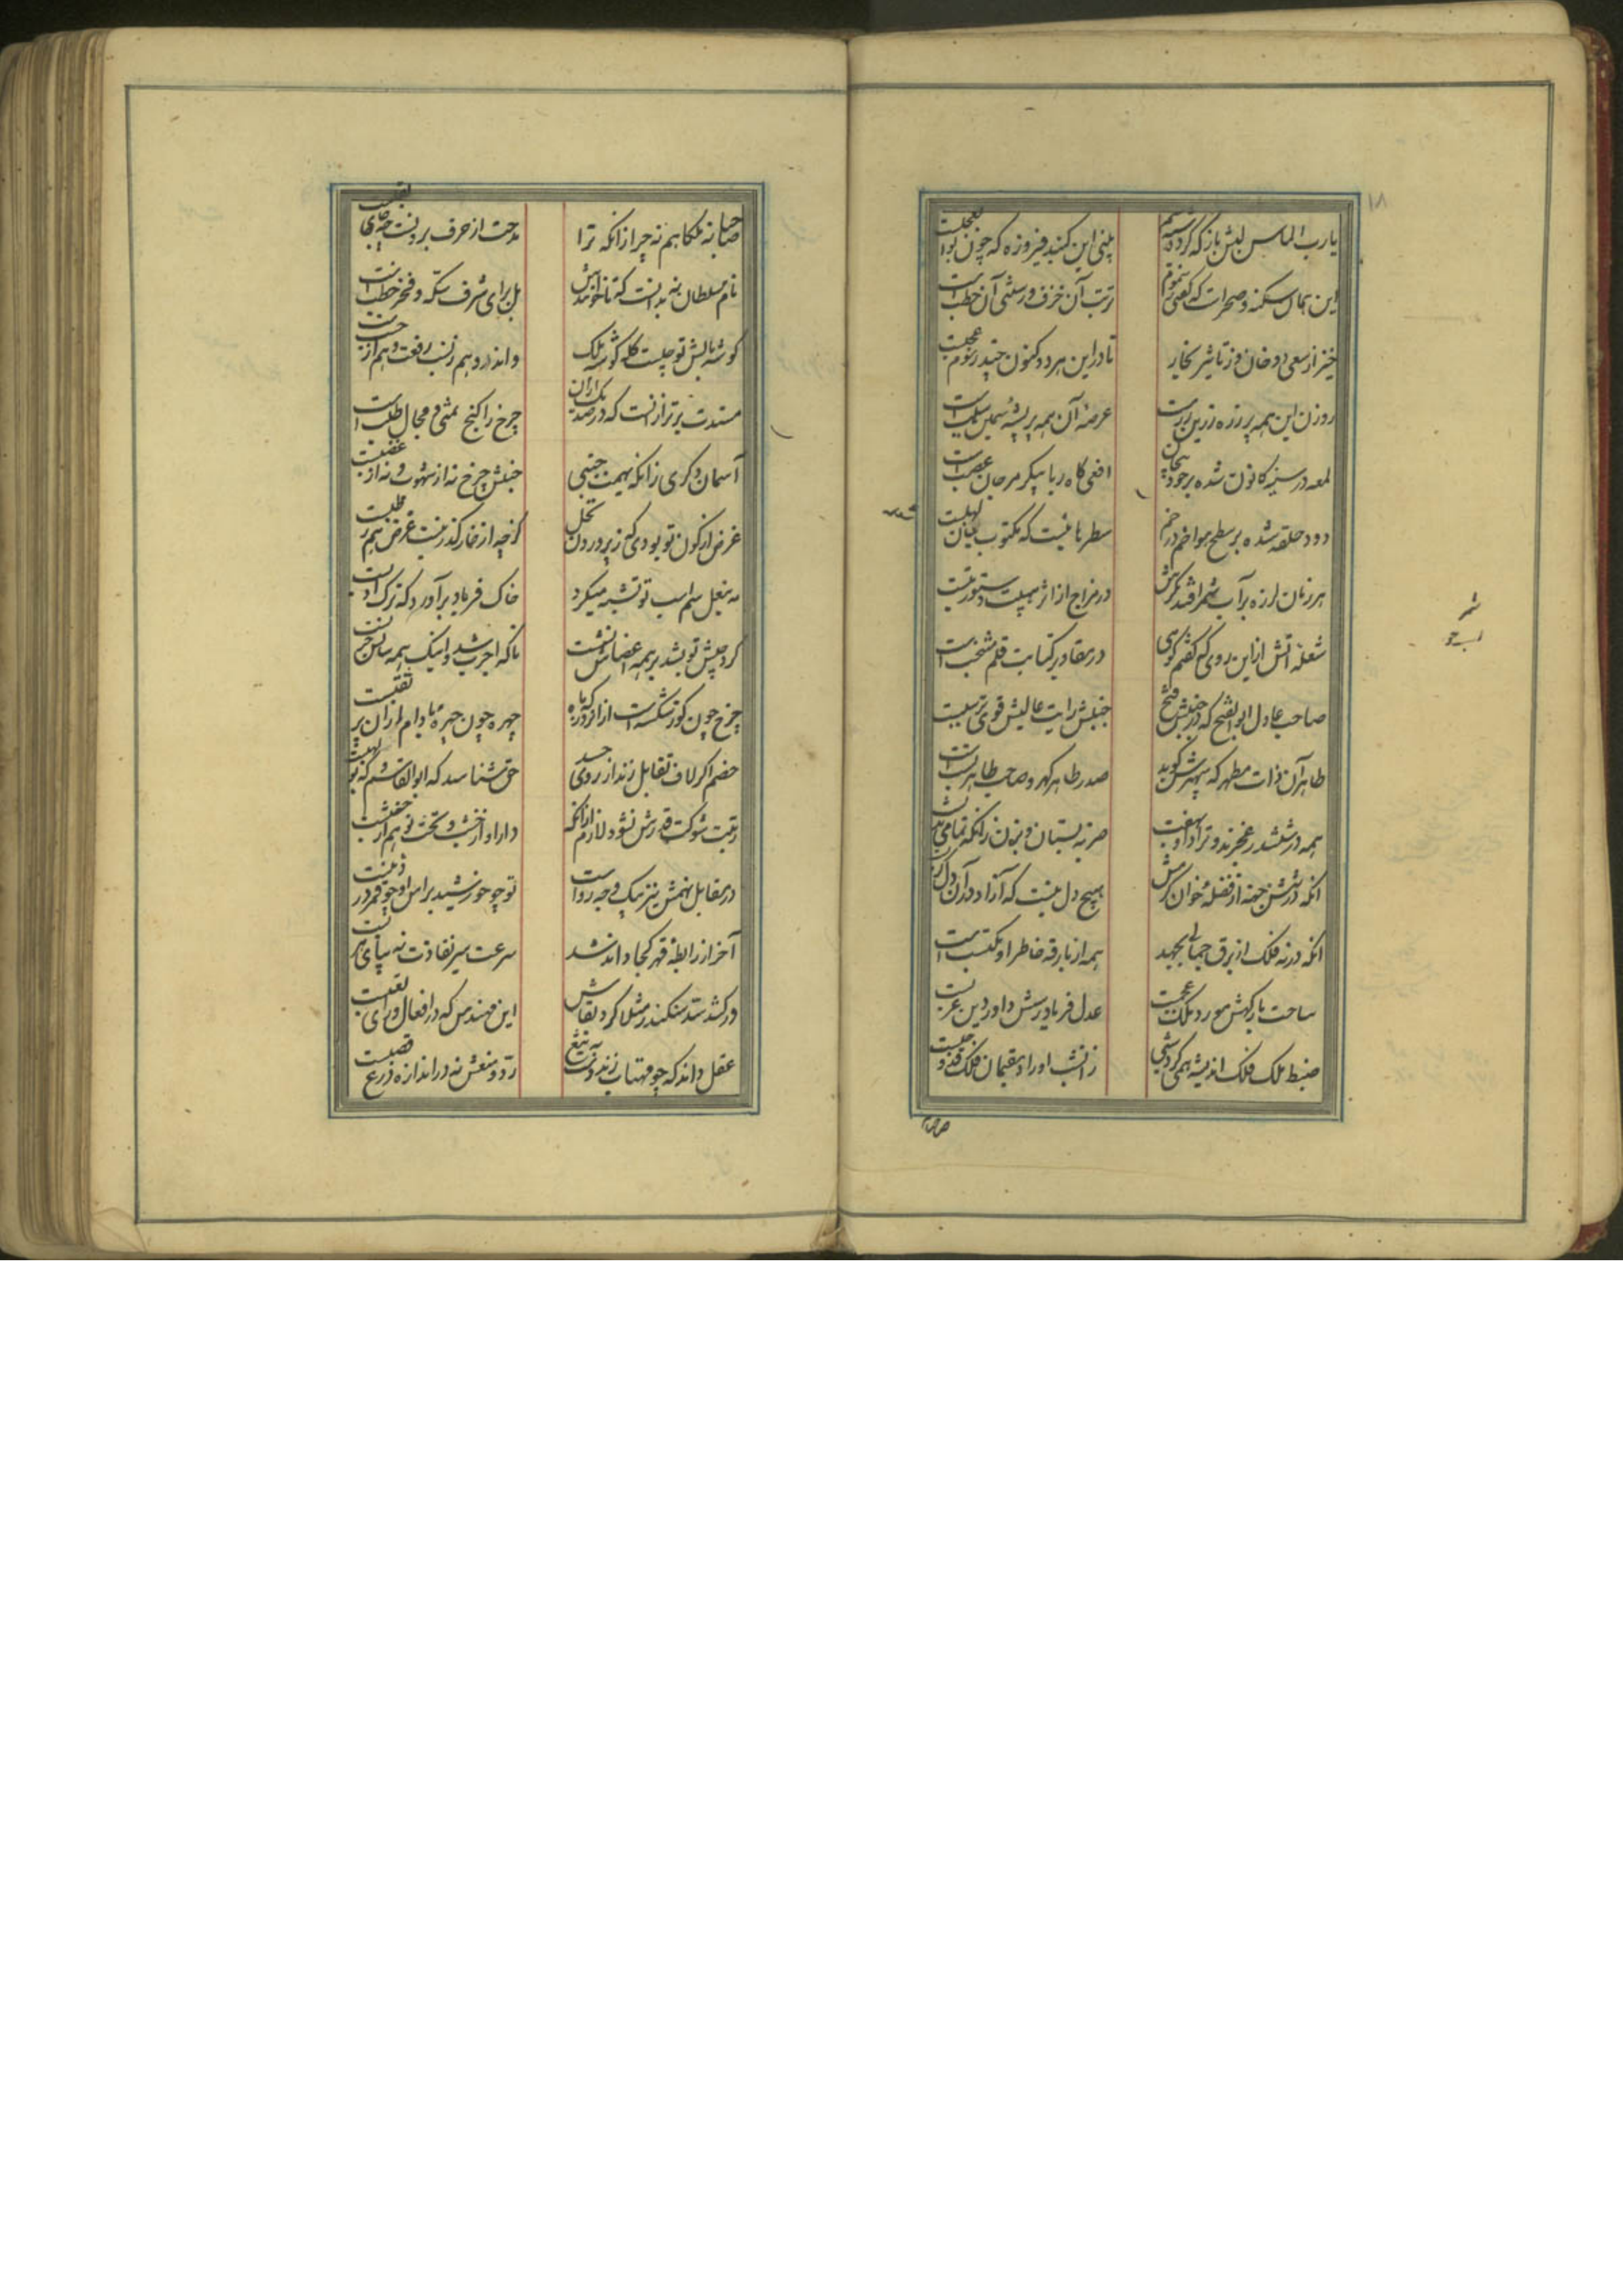 ۱۸
یارب الماس لبش باز که کرد شبه سم
بینی این گنبد فیروزه که چون بوالعجبست
این همان سکنه و صحراست که گفتی ز سموم
تربت آن خزف و رستنی آن حطب است
خیز از سعی دخان وز تاثیر بخار
تا در این هر دو کنون چند رسوم عجبست
روزن این همه پر زره زرین زرهست
عرصهٔ آن همه پر پشهٔ سیمین سلب است
لمعه در سینه کانون شده بر خود پیچان
افعی کاه ربا پیکر مرجان عصب است
دود حلقه شده بر سطح هوا خم در خم
سطرهائیست که مکتوب بنان لهبست
هر زمان لرزه بر آب شمر افتد مگرش
در مزاج از اثر هیبت دستور تبست
شعله آتش ازین روی که گفتم گوئی
در مقادیر کتابت قلم منتخب است
صاحب عادل ابوالفتح که در جنبش فتح
جنبش رایت عالیش قوی تر سببست
طاهر آن ذات مطهر که سپهرش گوید
صدر طاهر گهر و صاحب طاهر نسب است
همه در ششدر عجزند و ترا داو بهفت
ضربه بستان و بزن زانکه تمامی ندبست
آنکه در شش جهت از فضلهٔ خوان کرمش
هیچ دل نیست که از آز در آن دل کربست
آنکه در نه فلک از برق جمالی بجهد
همه از بارقه خاطر او مکتسب است
ساحت بارگهش مورد ملک عجمست
عدل فریادرسش داور دین عربست
ضبط ملک فلک اندیشه همی کرد شبی
زانشب او را و مقیمان فلک را
شمر
آب جو
صاحبا نه ملکا هم نه چرا زانکه ترا
مدحت از حرف برونست چه جای لقبست
نام سلطان نه بدانست که تا خوانندش
بل برای شرف سکه و فخر خطب است
گوشهٔ بالش تو چیست کله گوشه ملک
واندر او هم ز نسب رفعت و هم از حسبست
مسندت برتر از آنست که در صد یک ازان
چرخ را گنج تمنی و مجال طلب است
آسمان دگری زانکه بهمت جنبی
جنبش چرخ نه از شهوت و نه از غضبست
غرض از کون تو بودی که ز پروردن نخل
گرچه از خار گذر نیست غرض هم رطبست
مه بنعل سم اسب تو تشبه میکرد
خاک فریاد برآورد که ترک ادبست
گرد جیش تو بشد بر همه اعضاش نشست
تا که اجرب شد و اینک همه سالش جربست
چرخ چون گوز شکسته است ازان روی که ماه
چهره چون چهره بادام ازان پر ثقبست
خصم اگر لاف تقابل زند از روی حسد
حق شناسد که ابوالقاسم که بولهبست
رتبت شوکت و قدرش نشود لازم ازانکه
دار او از خشب و تخت تو هم از خشبست
در مقابل نهمش نیز بیک وجه رواست
تو چو خورشید براس او چو قمر در ذنبست
آخر از رابطهٔ قهر کجا داند شد
سرعت سیر نفاذت نه بپای هربست
در کشد سد سکندر مثلا گرد بقاش
این مهندس که در افعال ورای تعبست
عقل داند که چو مهتاب زند دست بتیغ
رد و منعش نه در اندازه درع قصبست